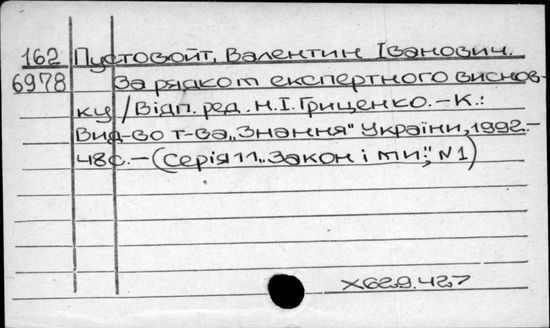 162 Пустовойт, Валентин Іванович.
6978 За рядком експертного виснов-
ку / Відп. ред. Н.І. Гриценко. – К.:
Вид-во т-ва „Знання" України, 1992. –
48с. – (Серія 11 „Закон і ми"; N1)
Х629.427